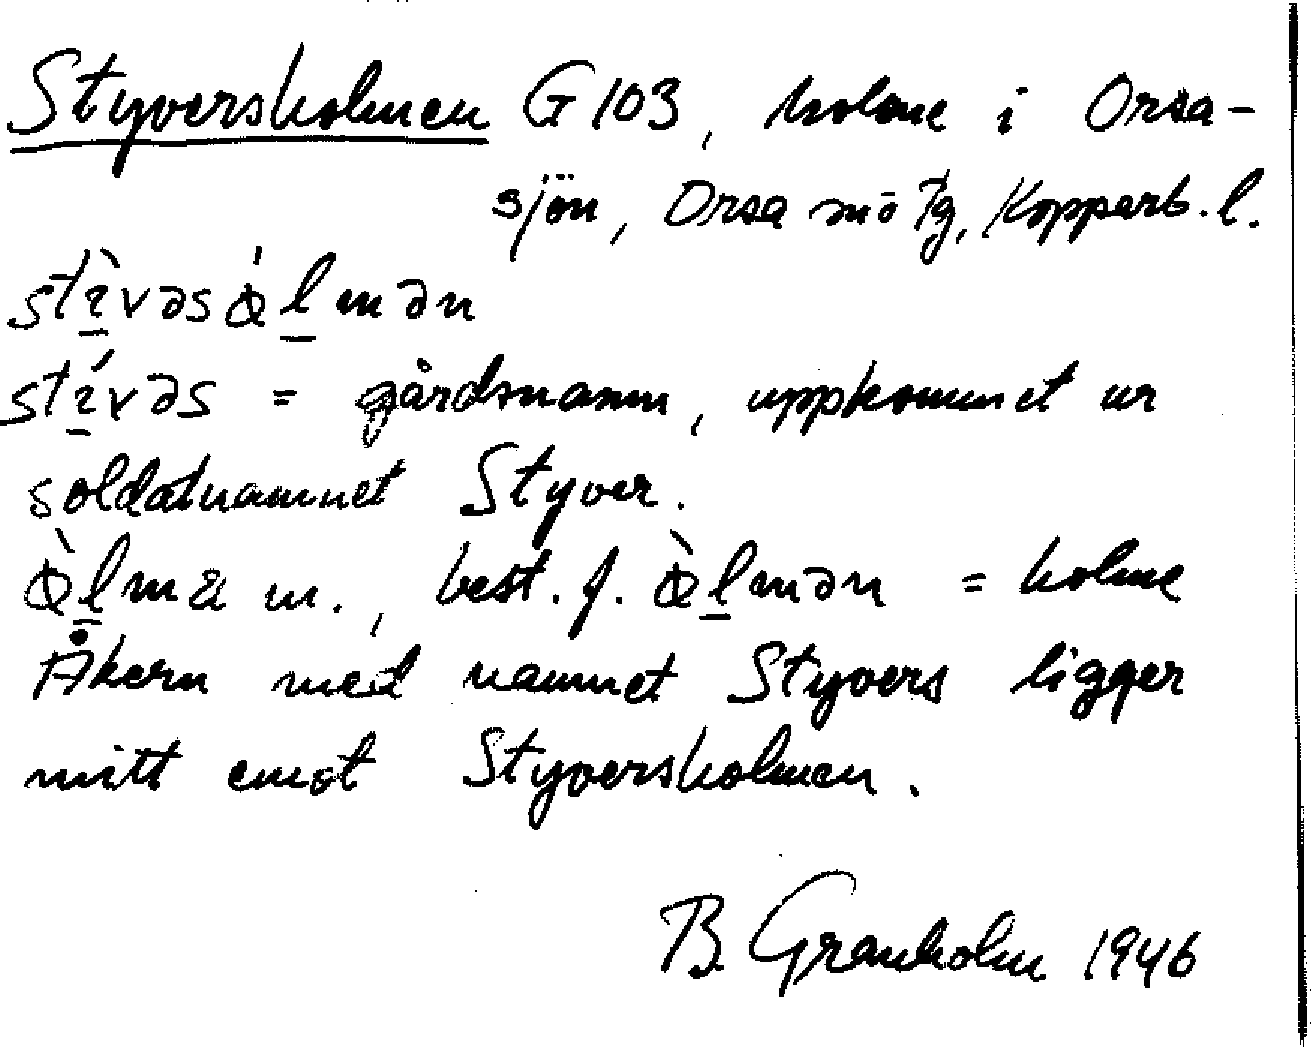 Styversholmen G 103, holme i Orsa-
sjön, Orsa sn o tg, Kopparb. l.
stìvəsɷ̀lmən
stívəs = gårdsnamn, uppkommet ur
soldatnamnet Styver.
m., best. f. = holme
Åkern med namnet Styvers ligger
mitt emot Styversholmen.
B. Granholm 1946